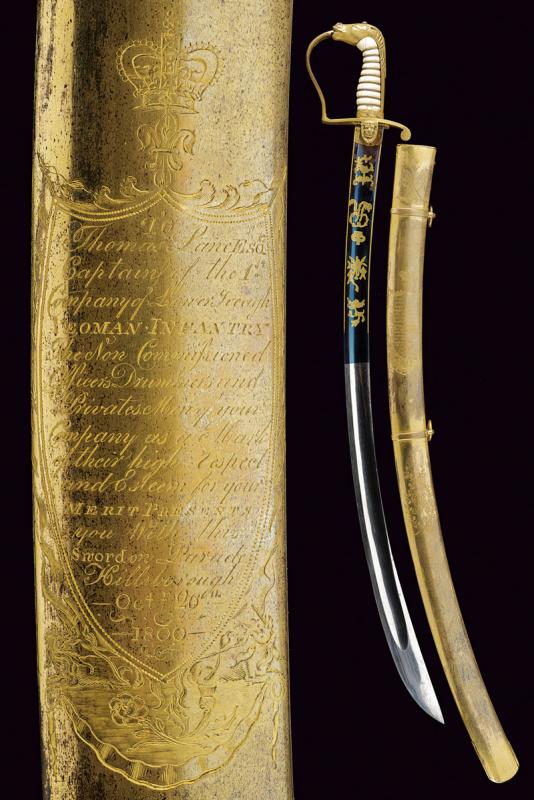 TO
Thomas Lane ESQ.
Captain of the 1st
Company of Lower Iveagh
YEOMAN·INFANTRY
The Non Commissioned
Officers Drummers and
Privates of your
Company as a Mark
of their high Respect
and Esteem for your
MERIT PRESENTS
you With this
Sword on Parade
Hillsborough
—Octr. 26th—
—1800—